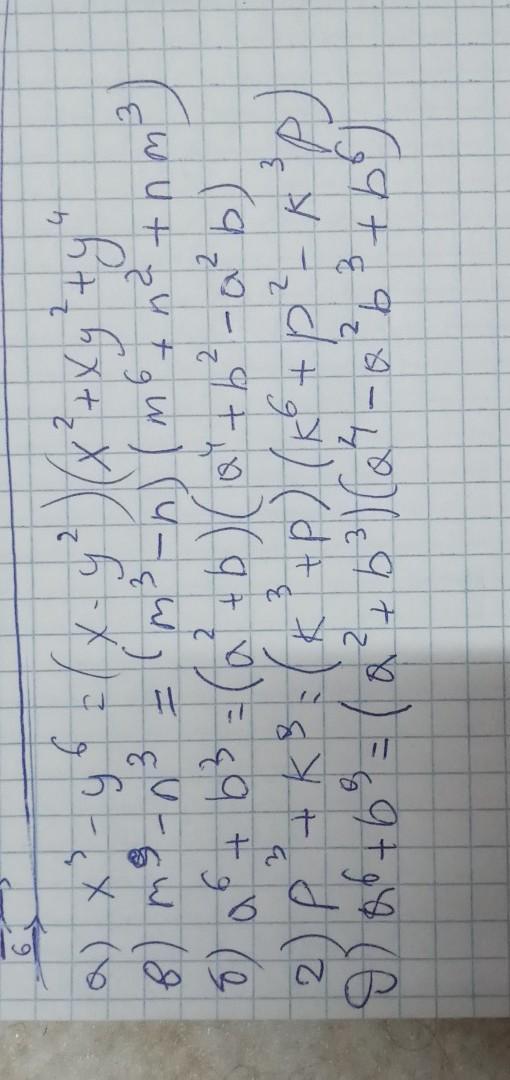 6
а) x³ - y⁶ = (x - y²)(x² + xy² + y⁴
в) m⁹ - n³ = (m³ - n)(m⁶ + n² + nm³)
б) a⁶ + b³ = (a² + b)(a⁴ + b² - a²b)
г) p³ + k⁹ = (k³ + p)(k⁶ + p² - k³p)
д) a⁶ + b⁹ = (a² + b³)(a⁴ - a²b³ + b⁶)